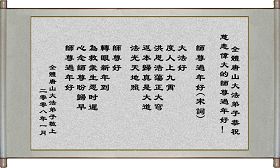 全體唐山大法弟子恭祝
慈悲偉大的師尊過年好!
師尊過年好(宋詞)
大法好
度人上九霄
洪恩浩蕩正大穹
返本歸真是大道
法光天地照
師尊好
轉眼新年到
為救眾生恩時遲
心念師尊盼歸早
師尊過年好
全體唐山大法弟子敬上
二零零八年一月